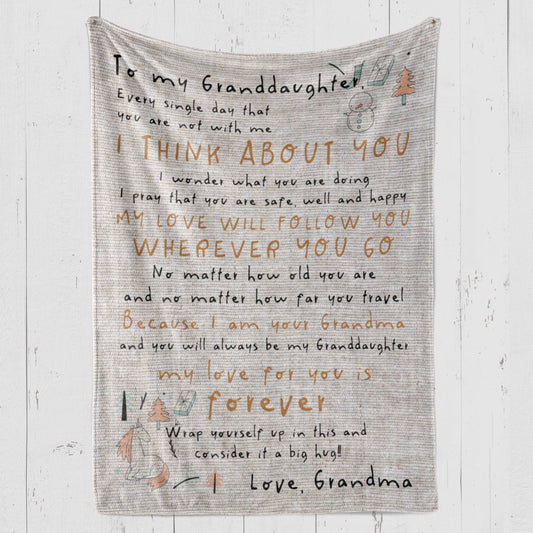 To my Granddaughter,
Every single day that
you are not with me
I THINK ABOUT YOU
I wonder what you are doing
I pray that you are safe, well and happy
MY LOVE WILL FOLLOW YOU
WHEREVER YOU GO
No matter how old you are
and no matter how far you travel
Because I am your Grandma
and you will always be my Granddaughter
my love for you is
forever
Wrap yourself up in this and
consider it a big hug!
Love, Grandma